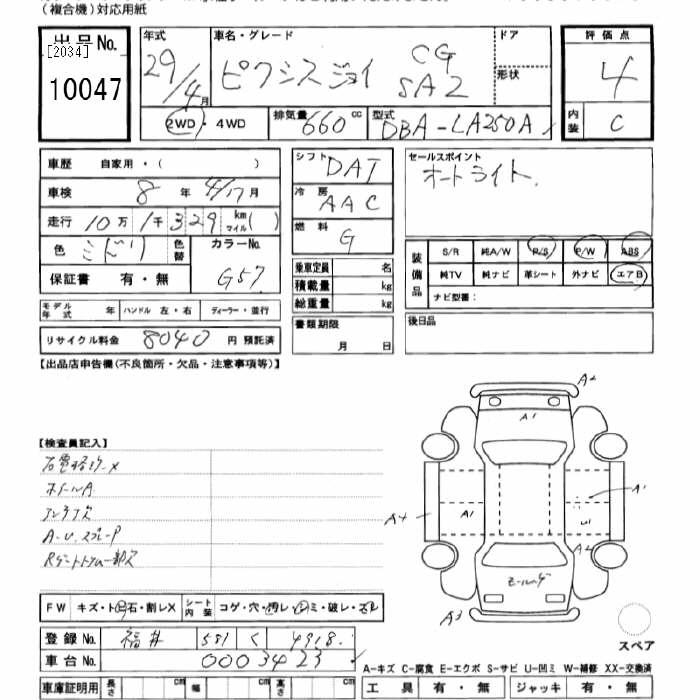 (複合機)対応用紙
出品No.
[2034]
10047
年式
29/4月
車名・グレード
ピクシスジョイ CG SA2
ドア
形状
評価点
4
内装
C
2WD・4WD
排気量 660 cc
型式 DBA-LA250A
車歴 自家用・( )
車検 8年 4/17月
走行 10万 1千 329 km マイル( )
色
色替
カラーNo.
G57
保証書 有・無
モデル年式 年 ハンドル 左・右 ディーラー・並行
リサイクル料金 8040 円 預託済
シフト DAT
冷房 AAC
燃料 G
乗車定員 名
積載量 kg
総重量 kg
書類期限
月 日
セールスポイント
オートライト.
装備品
S/R 純A/W P/S P/W ABS
純TV 純ナビ 革シート 外ナビ エアB
ナビ型番:
後日品
【出品店申告欄(不良箇所・欠品・注意事項等)】
【検査員記入】
ホイールA
A-U.スプレーP
Rゲートトリム一部ス
A2
A1
A4
A1
A1
U1
A2
モールハゲ
A3
スペア
FW キズ・ト石・割レX
シート内装 コゲ・穴・切レ・シミ・破レ・スレ
登録No. 福井 581 く 4918
車台No. 0003423
A-キズ C-腐食 E-エクボ S-サビ U-凹ミ W-補修 XX-交換済
車庫証明用 長さ cm 幅 cm 高さ cm
工具 有・無 ジャッキ 有・無